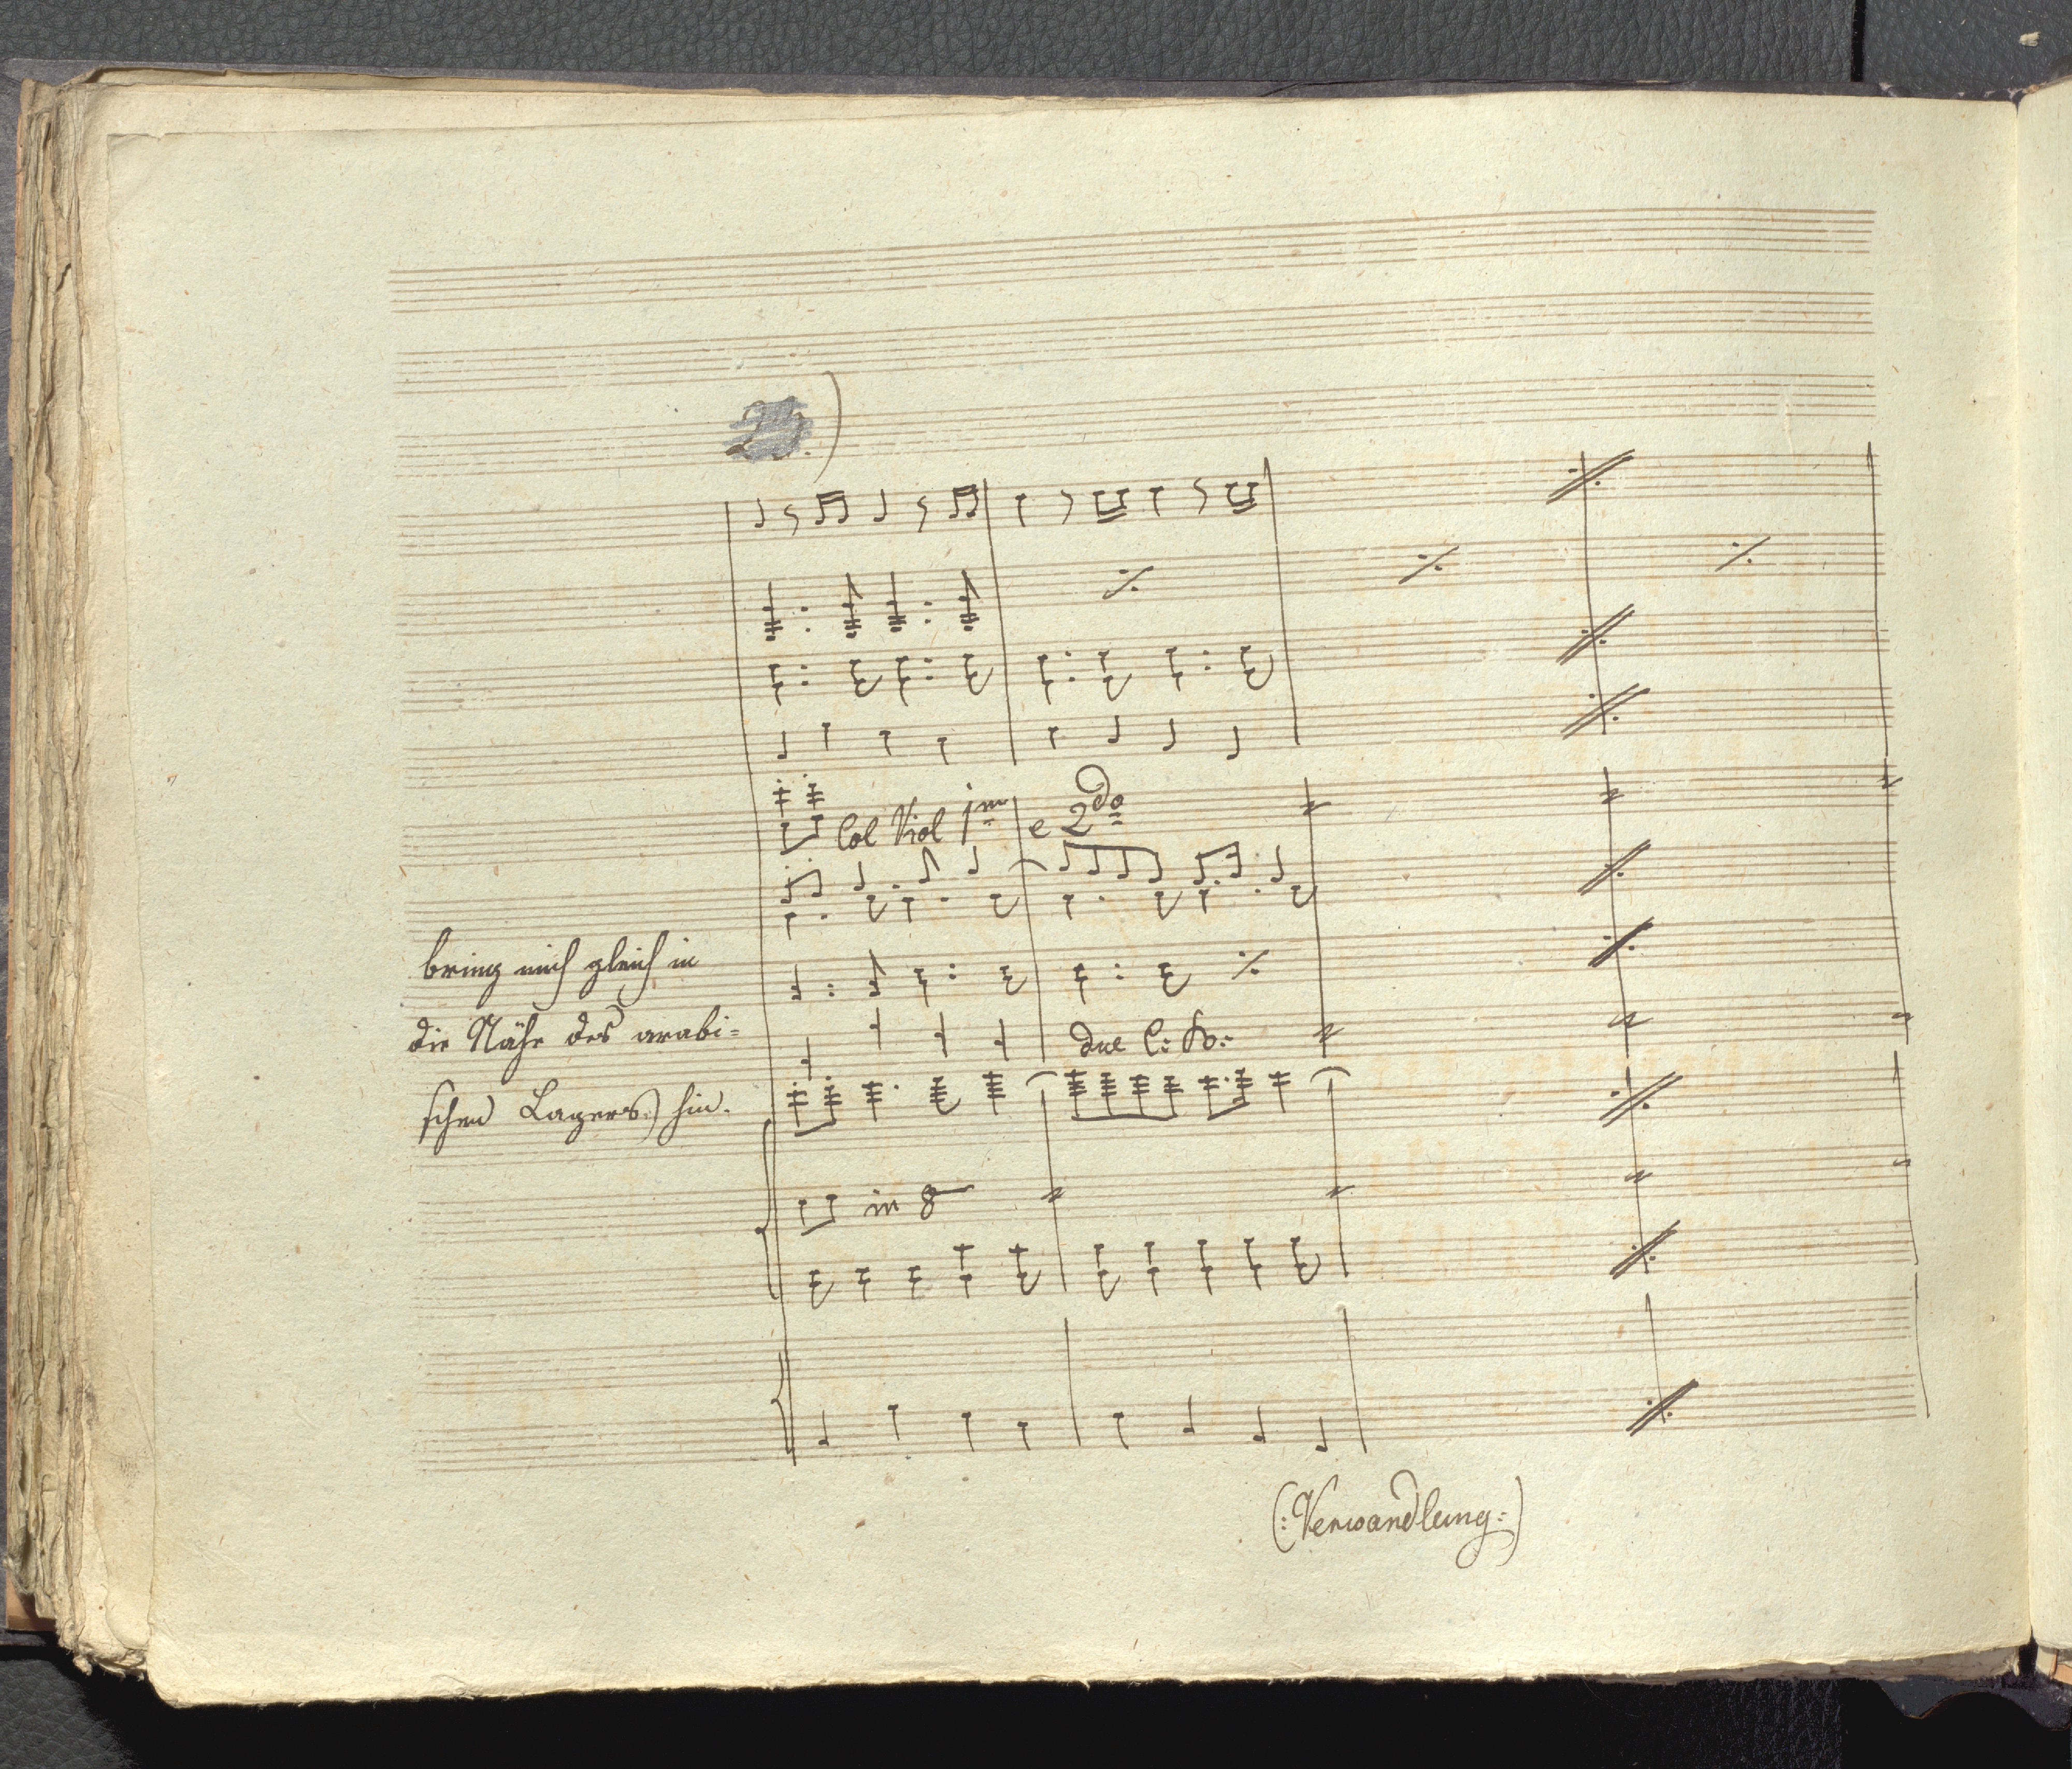 Col Viol 1mo e 2do
bring mich gleich in
die Nähe des arabi=
schen Lagers:) hin.
due C: B:
in 8
(:Verwandlung:)